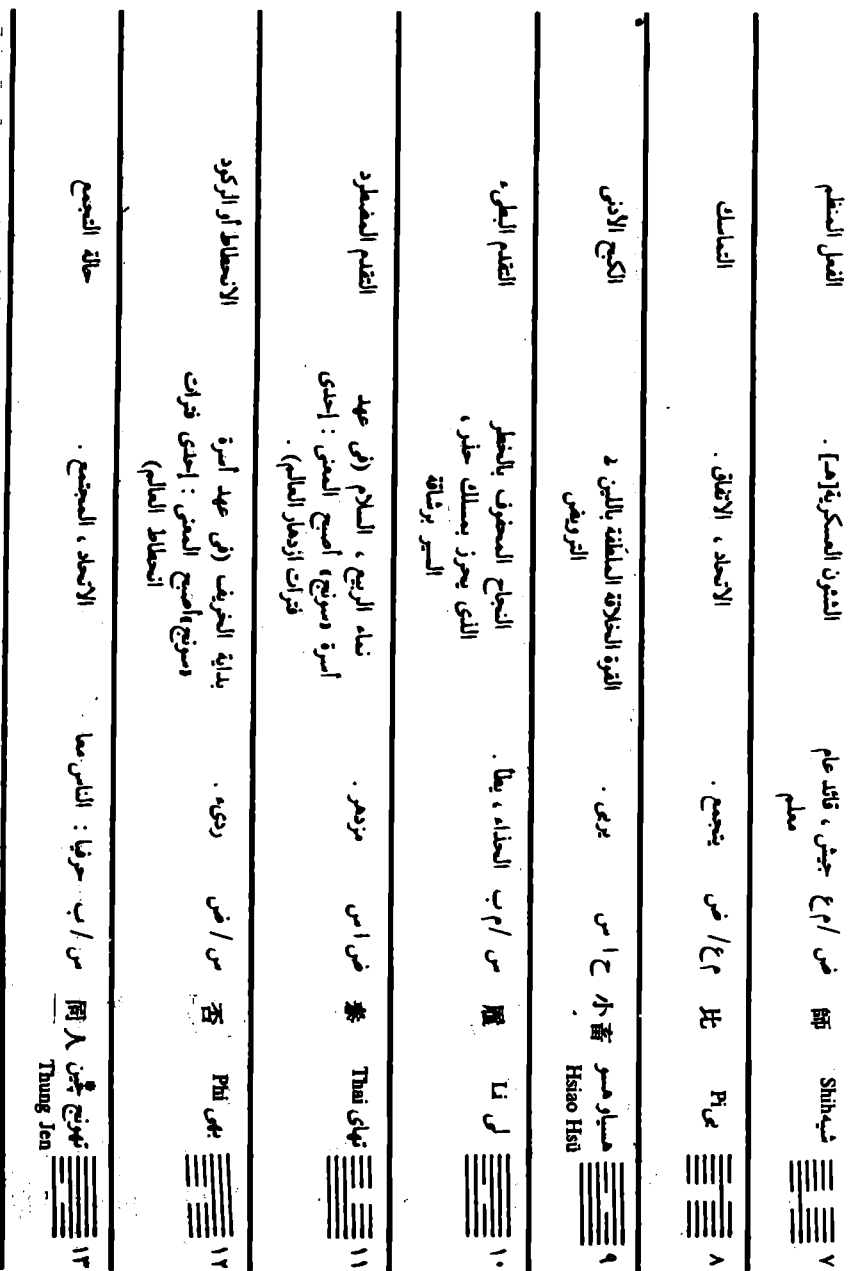 ٧ شيه Shih 師 ض / م ع جيش ، قائد عام معلم الشئون العسكرية [هـ] . الفعل المنظم
٨ بى Pi 比 م ع / ض يتجمع . الاتحاد ، الاتفاق . التماسك
٩ هسياو هسو Hsiao Hsü 小畜 ح / س يربى . القوة الخلاقة الملطفة باللين الترويض الكبح الأدنى
١٠ لى Li 履 س / م ب الحذاء ، يطأ . النجاح المحفوف بالخطر الذى يحرز بمسلك حذر ، السير برشاقة التقدم البطىء
١١ تهاى Thai 泰 ض / س مزدهر . نماء الربيع ، السلام (فى عهد أسرة «سونج» أصبح المعنى : إحدى فترات ازدهار العالم) . التقدم المضطرد
١٢ بهى Phi 否 س / ض ردىء . بداية الخريف (فى عهد أسرة «سونج» أصبح المعنى : إحدى فترات انحطاط العالم) الانحطاط أو الركود
١٣ تهونج چين Thung Jen 同人 س / ب حرفيا : الناس معا . الاتحاد ، المجتمع . حالة التجمع